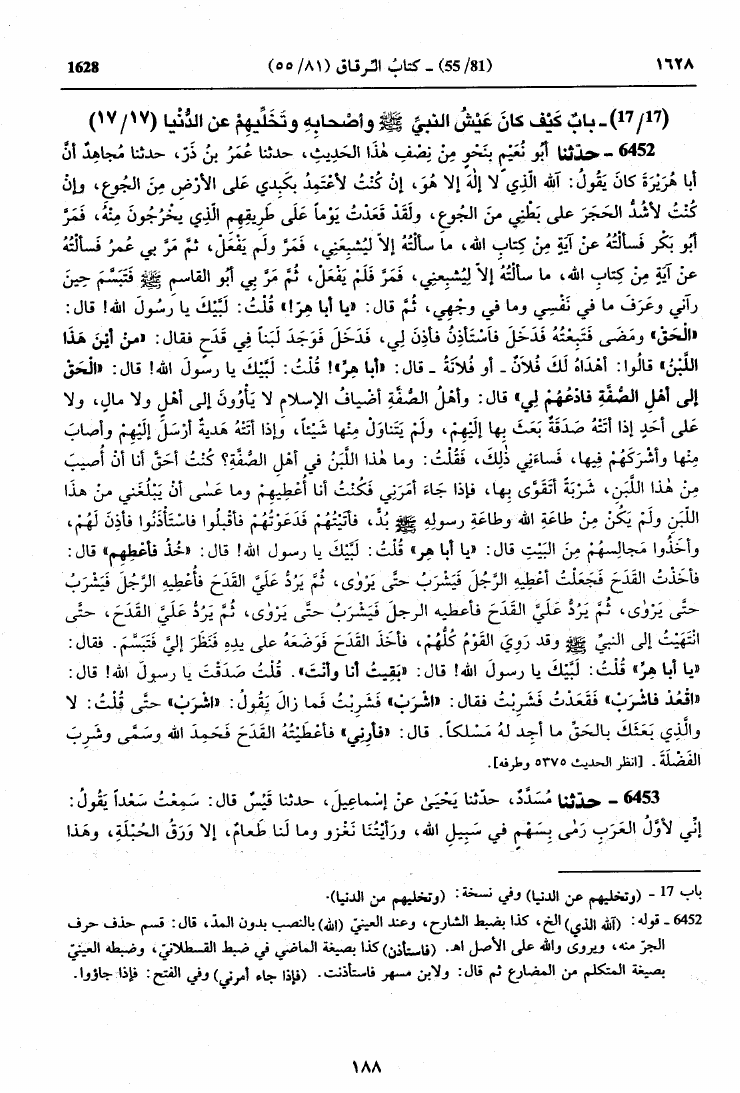 1628 (55/81) ـ كتابُ الـرقـاق (٥٥/٨١) ١٦٢٨
(17/17) ـ بـابٌ كَيْفَ كانَ عَيْشُ النبيِّ ﷺ وأصْحابِهِ وتَخَلِّيهِمْ عن الدُّنْيا (١٧/١٧)
6452 ـ حدّثنا أبُو نُعَيْمٍ بنَحْوٍ مِنْ نِصْفِ هٰذَا الحَدِيثِ، حدثنا عُمَرُ بنُ ذَرّ، حدثنا مُجاهِدٌ أنَّ
أبا هُرَيْرَةَ كانَ يَقُولُ: آلله الَّذِي لا إلٰهَ إلا هُوَ، إنْ كُنْتُ لأعْتَمِدُ بكَبِدِي عَلى الأرْضِ مِنَ الجُوعِ، وإنْ
كُنْتُ لأشُدُّ الحَجَرَ على بَطْنِي منَ الجُوعِ، ولَقَدْ قَعَدْتُ يَوْماً عَلَى طَرِيقِهِمِ الَّذِي يخْرُجُونَ مِنْهُ، فَمَرَّ
أبُو بَكْرٍ فَسألْتُهُ عنْ آيَةٍ مِنْ كِتابِ الله، ما سألْتُهُ إلاّ لِيُشْبِعَنِي، فَمَرَّ ولَم يَفْعَلْ، ثمَّ مَرَّ بي عُمرُ فَسألْتُهُ
عنْ آيَةٍ مِنْ كِتابِ الله، ما سألْتُهُ إلاّ لِيُشْبِعَنِي، فَمَرَّ فَلَمْ يَفْعَلْ، ثُمَّ مَرَّ بي أبُو القاسِمِ ﷺ فَتَبَسَّمَ حِينَ
رآني وعَرَفَ ما في نَفْسِي وما في وجْهِي، ثُمَّ قال: «يا أبا هِرّ!» قُلْتُ: لَبَّيْكَ يا رسُولَ الله! قال:
«الْحَقْ» ومَضَى فَتَبِعْتُهُ فَدَخَلَ فأسْتأذِنُ فأذِنَ لِي، فَدَخَلَ فَوَجَدَ لَبَناً فِي قَدَحٍ فقال: «منْ أيْنَ هَذَا
اللَّبَنُ» قالُوا: أهْدَاهُ لَكَ فُلاَنٌ ـ أو فُلانَةُ ـ قال: «أبا هِرّ»! قُلْتُ: لَبَّيْكَ يا رسولَ الله! قال: «الْحَقْ
إلى أهْلِ الصُّفَّةِ فادْعُهُمْ لِي» قال: وأهْلُ الصُّفَّةِ أضْيافُ الإسلامِ لا يأوُونَ إلى أهْلٍ ولا مالٍ، ولا
على أحَدٍ إذا أتَتْهُ صَدَقَةٌ بَعَثَ بها إلَيْهِمْ، ولَمْ يَتَناوَلْ مِنْها شَيْئاً، وإذا أتَتْهُ هَديةٌ أرْسَلَ إلَيْهِمْ وأصابَ
مِنْها وأشْرَكَهُمْ فِيها، فَساءَنِي ذٰلِكَ، فَقُلْتُ: وما هٰذا اللَّبَنُ في أهْلِ الصُّفَّةِ؟ كُنْتُ أحَقَّ أنا أنْ أُصِيبَ
مِنْ هٰذا اللَّبَنِ، شَرْبَةً أتَقَوَّى بِها، فإذا جَاءَ أمَرَنِي فَكُنْتُ أنا أُعْطِيهِمْ وما عَسٰى أنْ يَبْلُغَني منْ هذا
اللبَنِ ولَمْ يَكُنْ مِنْ طاعَةِ الله وطاعَةِ رسولِهِ ﷺ بُدٌّ، فأتَيْتُهُمْ فَدَعَوْتُهُمْ فأقْبلُوا فاسْتَأذَنُوا فأذِنَ لَهُمْ،
وأخَذُوا مَجالِسَهُمْ مِنَ البَيْتِ قال: «يا أبا هِرٍ» قُلْتُ: لَبَّيْكَ يا رسول الله! قال: «خُذْ فأعْطِهِم» قال:
فأخَذْتُ القَدَحَ فَجَعَلْتُ أعْطِيهِ الرَّجُلَ فَيَشْرَبُ حتَّى يَرْوٰى، ثُمَّ يَرُدُّ عَلَيَّ القَدَحَ فأُعْطِيهِ الرَّجُلَ فَيَشْرَبُ
حتَّى يَرْوٰى، ثُم يَرُدُّ عَلَيَّ القَدَحَ فأعطيه الرجلَ فَيَشْرَبُ حتَّى يَرْوٰى، ثُمَّ يَرُدُّ عَلَيَّ القَدَحَ، حتَّى
انْتَهَيْتُ إلى النبيِّ ﷺ وقد رَوِيَ القَوْمُ كُلُّهُمْ، فأخَذَ القَدَحَ فَوَضَعَهُ على يدِهِ فَنَظَرَ إليَّ فَتَبَسَّمَ. فقال:
«يا أبا هِرٍّ» قُلْتُ: لَبَّيْكَ يا رسولَ الله! قال: «بَقِيتُ أنا وأنْتَ». قُلْتُ صَدَقْتَ يا رسولَ الله! قال:
«اقْعُدْ فاشْرَبْ» فَقَعَدْتُ فَشَرِبْتُ فقال: «اشْرَبْ» فَشَرِبْتُ فما زالَ يَقُولُ: «اشْرَبْ» حتَّى قُلْتُ: لا
والَّذِي بَعَثَكَ بالحَقِّ ما أجِد لهُ مَسْلكاً. قال: «فأرِنِي» فأعْطَيْتُهُ القَدَحَ فَحَمِدَ الله وسَمَّى وشَرِبَ
الفَضْلَةَ. [انظر الحديث ٥٣٧٥ وطرفه].
6453 ـ حدّثنا مُسَدَّدٌ، حدّثنا يَحْيَىٰ عنْ إسْماعِيلَ، حدثنا قَيْسٌ قال: سَمِعْتُ سَعْداً يَقُولُ:
إنِّي لأوَّلُ العَرَبِ رَمٰى بِسَهْمٍ في سَبِيلِ الله، ورَأيْتُنَا نَغْزو وما لَنا طَعامٌ، إلا ورَقُ الحُبْلَةِ، وهٰذا
باب 17 ـ (وتخليهم عن الدنيا) وفي نسخة: (وتخليهم من الدنيا).
6452 ـ قوله: (آلله الذي) الخ، كذا بضبط الشارح، وعند العينيّ (الله) بالنصب بدون المدّ، قال: قسم حذف حرف
الجرّ منه، ويروى والله على الأصل اهـ. (فاستأذن) كذا بصيغة الماضي في ضبط القسطلانيّ، وضبطه العينيّ
بصيغة المتكلم من المضارع ثم قال: ولابن مسهر فاستأذنت. (فإذا جاء أمرني) وفي الفتح: فإذا جاؤوا.
١٨٨